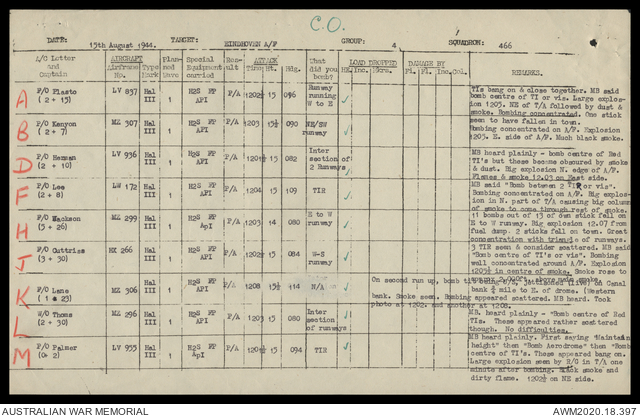 C.O.
DATE: 15th August 1944. TARGET: EINDHOVEN A/F GROUP: 4 SQUADRON: 466
A/C Letter and Captain
AIRCRAFT Airframe No. Type Mark
Planned Wave
Special Equipment carried
Result
ATTACK Time Ht. Hdg.
What did you bomb?
LOAD DROPPED HE. Inc. Hors.
DAMAGE BY Fl. Fi. Inc. Col.
REMARKS.
A F/O Plasto (2 + 15) LV 837 Hal III 1 H2S FP API P/A 1202½ 15 096 Runway running W to E
TIs bang on & close together. MB said bomb centre of TI or vis. Large explosion 1205. NE of T/A followed by dust & smoke. Bombing concentrated. One stick seen to have fallen in town.
B F/O Kenyon (2 + 7) MZ 307 Hal III 1 H2S FP API P/A 1203 15½ 090 NE/SW runway
Bombing concentrated on A/F. Explosion 1205. E. side of A/F. Much black smoke.
D F/O Herman (2 + 10) LV 936 Hal III 1 H2S FP API P/A 15 082 Inter section of 2 Runways
MB heard plainly - bomb centre of Red TI's but these became obscured by smoke & dust. Big explosion N. edge of A/F. Flames & smoke 12.03 on East side.
F F/O Lee (2 + 8) LW 172 Hal III 1 H2S FP API P/A 1204 15 109 TIR
MB said "Bomb between 2 TIR or vis". Bombing concentrated on A/F. Big explosion in N. part of T/A causing big column of smoke to come through rest of smoke.
H F/O Mackson (5 + 26) MZ 299 Hal III 1 H2S FP ApI P/A 1203 14 080 E to W runway
11 bombs out of 13 of own stick fell on E to W runway. Big explosion 12.07 from fuel dump. 2 sticks fell on town. Great concentration with triangle of runways.
J F/O Guttriss (3 + 30) HX 266 Hal III 1 H2S FP API P/A 15 084 W-S runway
3 TIR seen & consider scattered. MB said "Bomb centre of TI's or vis". Bombing well concentrated around A/F. Explosion in centre of smoke. Smoke rose to above main smoke.
K F/O Lane (1 + 23) MZ 306 Hal III 1 H2S FP API P/A 1208 15½ 114 N/A
On second run up, bomb tit being U/S, jettisoned (live) on Canal bank ½ mile to E. of drome. (Western bank. Smoke seen. Bombing appeared scattered. MB heard. Took photo at 1202. and another at 1208.
L W/O Thoms (2 + 30) MZ 296 Hal III 1 H2S FP API P/A 1203 15 080 Inter section of runways
MB. heard plainly - "Bomb centre of Red TI's. These appeared rather scattered though. No difficulties.
M F/O Palmer (0+ 2) LV 955 Hal III 1 H2S FP ApI P/A 15 094 TIR
MB heard plainly. First saying "Maintain height" then "Bomb Aerodrome" then "Bomb centre of TI's". These appeared bang on. Large explosion seen by R/G in T/A one minute after bombing. Black smoke and dirty flame. 1202½ on NE side.
AUSTRALIAN WAR MEMORIAL AWM2020.18.397